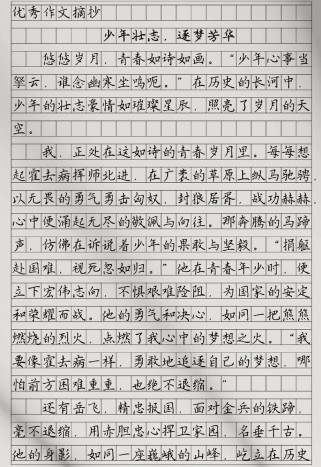 优秀作文摘抄
少年壮志，逐梦芳华
悠悠岁月，青春如诗如画。“少年心事当
拏云，谁念幽寒坐呜呃。”在历史的长河中，
少年的壮志豪情如璀璨星辰，照亮了岁月的天
空。
我，正处在这如诗的青春岁月里。每每想
起霍去病挥师北进，在广袤的草原上纵马驰骋，
以无畏的勇气勇击匈奴，封狼居胥，战功赫赫，
心中便涌起无尽的敬佩与向往。那奔腾的马蹄
声，仿佛在诉说着少年的果敢与坚毅。“捐躯
赴国难，视死忽如归。”他在青春年少时，便
立下宏伟志向，不惧艰难险阻，为国家的安定
和荣耀而战。他的勇气和决心，如同一把熊熊
燃烧的烈火，点燃了我心中的梦想之火。“我
要像霍去病一样，勇敢地追逐自己的梦想，哪
怕前方困难重重，也绝不退缩。”
还有岳飞，精忠报国，面对金兵的铁蹄，
毫不退缩，用赤胆忠心捍卫家园，名垂千古。
他的身影，如同一座巍峨的山峰，屹立在历史